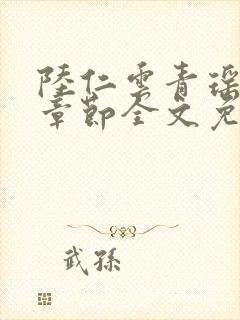 陸仁雲青瑶
章節全文免
武孫